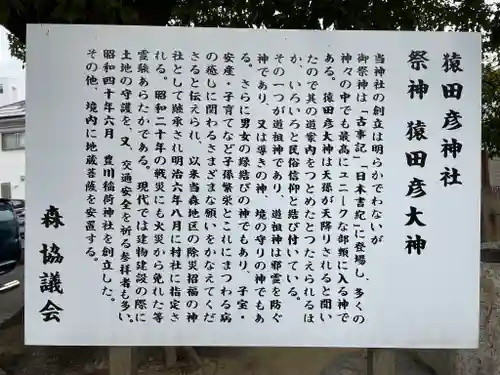 猿田彦神社
祭神 猿田彦大神
当神社の創立は明らかでわないが
御祭神は「古事記」「日本書紀」に登場し、多くの
神々の中でも最高にユニークな部類に入る神で
ある。猿田彦大神は天孫が天降りされると聞い
たので其の道案内をつとめたとつたえられるほ
か、いろいろと民俗信仰と結び付いている。
その一つが道祖神であり、道祖神は邪霊を防ぐ
神であり、又は導きの神、境の守りの神でもあ
る。さらに男女の縁結びの神でもあり、子宝・
安産・子育てなど子孫繁栄とこれにまつわる病
の癒しに関わるさまざまな願いをかなえてくだ
さると伝えられ、以来当森地区の除災招福の神
社として継承され明治六年八月に村社に指定さ
れる。昭和二十年の戦災にも火災から免れた等
霊験あらたかである。現代では建物建設の際に
土地の守護を、又、交通安全を祈る参拝者も多い。
昭和四十年六月 豊川稲荷神社を創立した。
その他、境内に地蔵菩薩を安置する。
森協議会